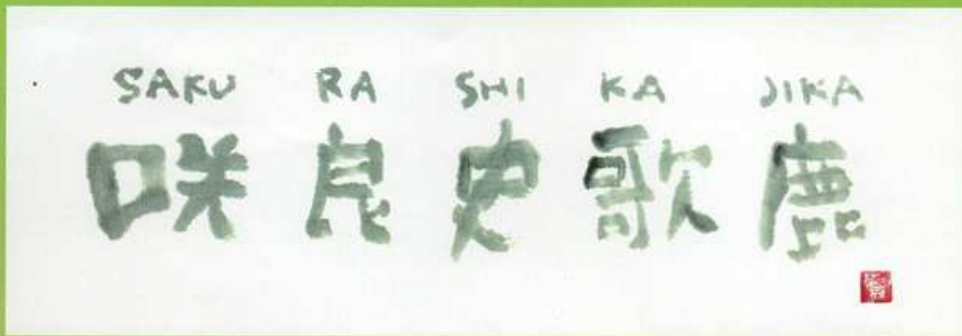 SAKU RA SHI KA JIKA
咲良史歌鹿